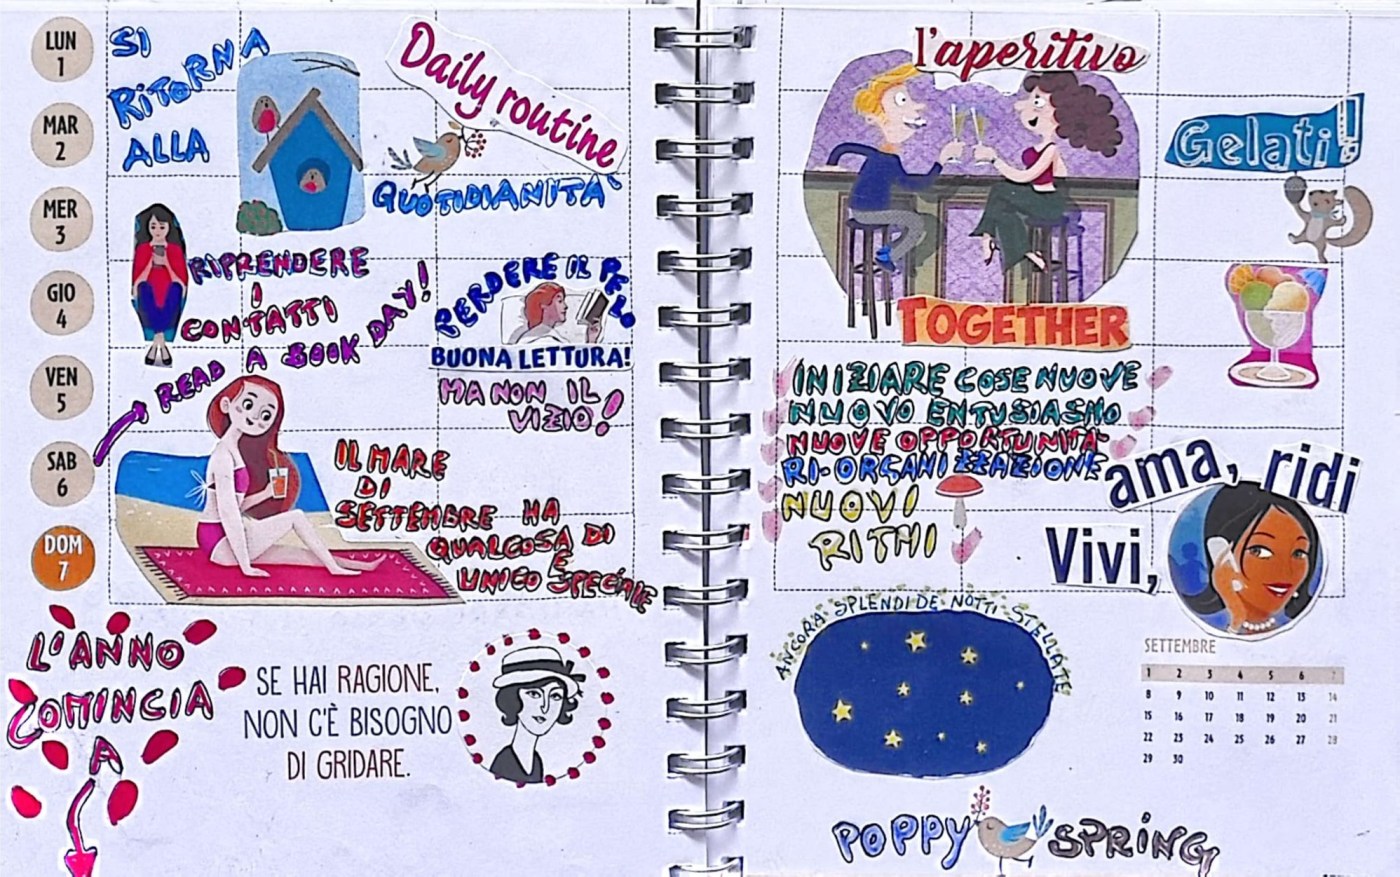 LUN
1
MAR
2
MER
3
GIO
4
VEN
5
SAB
6
DOM
7
SI
RITORNA
ALLA
Daily routine
QUOTIDIANITÀ
RIPRENDERE
I
CONTATTI
READ A BOOK DAY!
PERDERE IL PELO
BUONA LETTURA!
MA NON IL
VIZIO!
IL MARE
DI
SETTEMBRE HA
QUALCOSA DI
UNICO E SPECIALE
L'ANNO
COMINCIA
A
SE HAI RAGIONE,
NON C'È BISOGNO
DI GRIDARE.
l'aperitivo
TOGETHER
Gelati!
INIZIARE COSE NUOVE
NUOVO ENTUSIASMO
NUOVE OPPORTUNITÀ
RI-ORGANIZZAZIONE
NUOVI
RITMI
ama, ridi
Vivi,
ANCORA SPLENDIDE NOTTI STELLATE
SETTEMBRE
1 2 3 4 5 6 7
8 9 10 11 12 13 14
15 16 17 18 19 20 21
22 23 24 25 26 27 28
29 30
POPPY SPRING